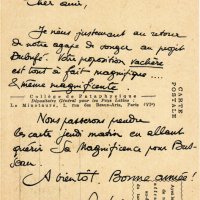 Cher ami,
Je nous justement au retour
de notre agape de songer au projet
Dubuffet. Votre proposition vachère
est tout à fait magnifique....
& même magnificente.
Collège de Pataphysique
Dépositaire Général pour les Pays Lettrés:
Le Minotaure, 2, rue des Beaux-Arts, Paris (VIe)
CARTE
POSTALE
Nous passerons prendre
les cartes jeudi matin en allant
quérir Sa Magnificence pour
A bientôt. Bonne année!